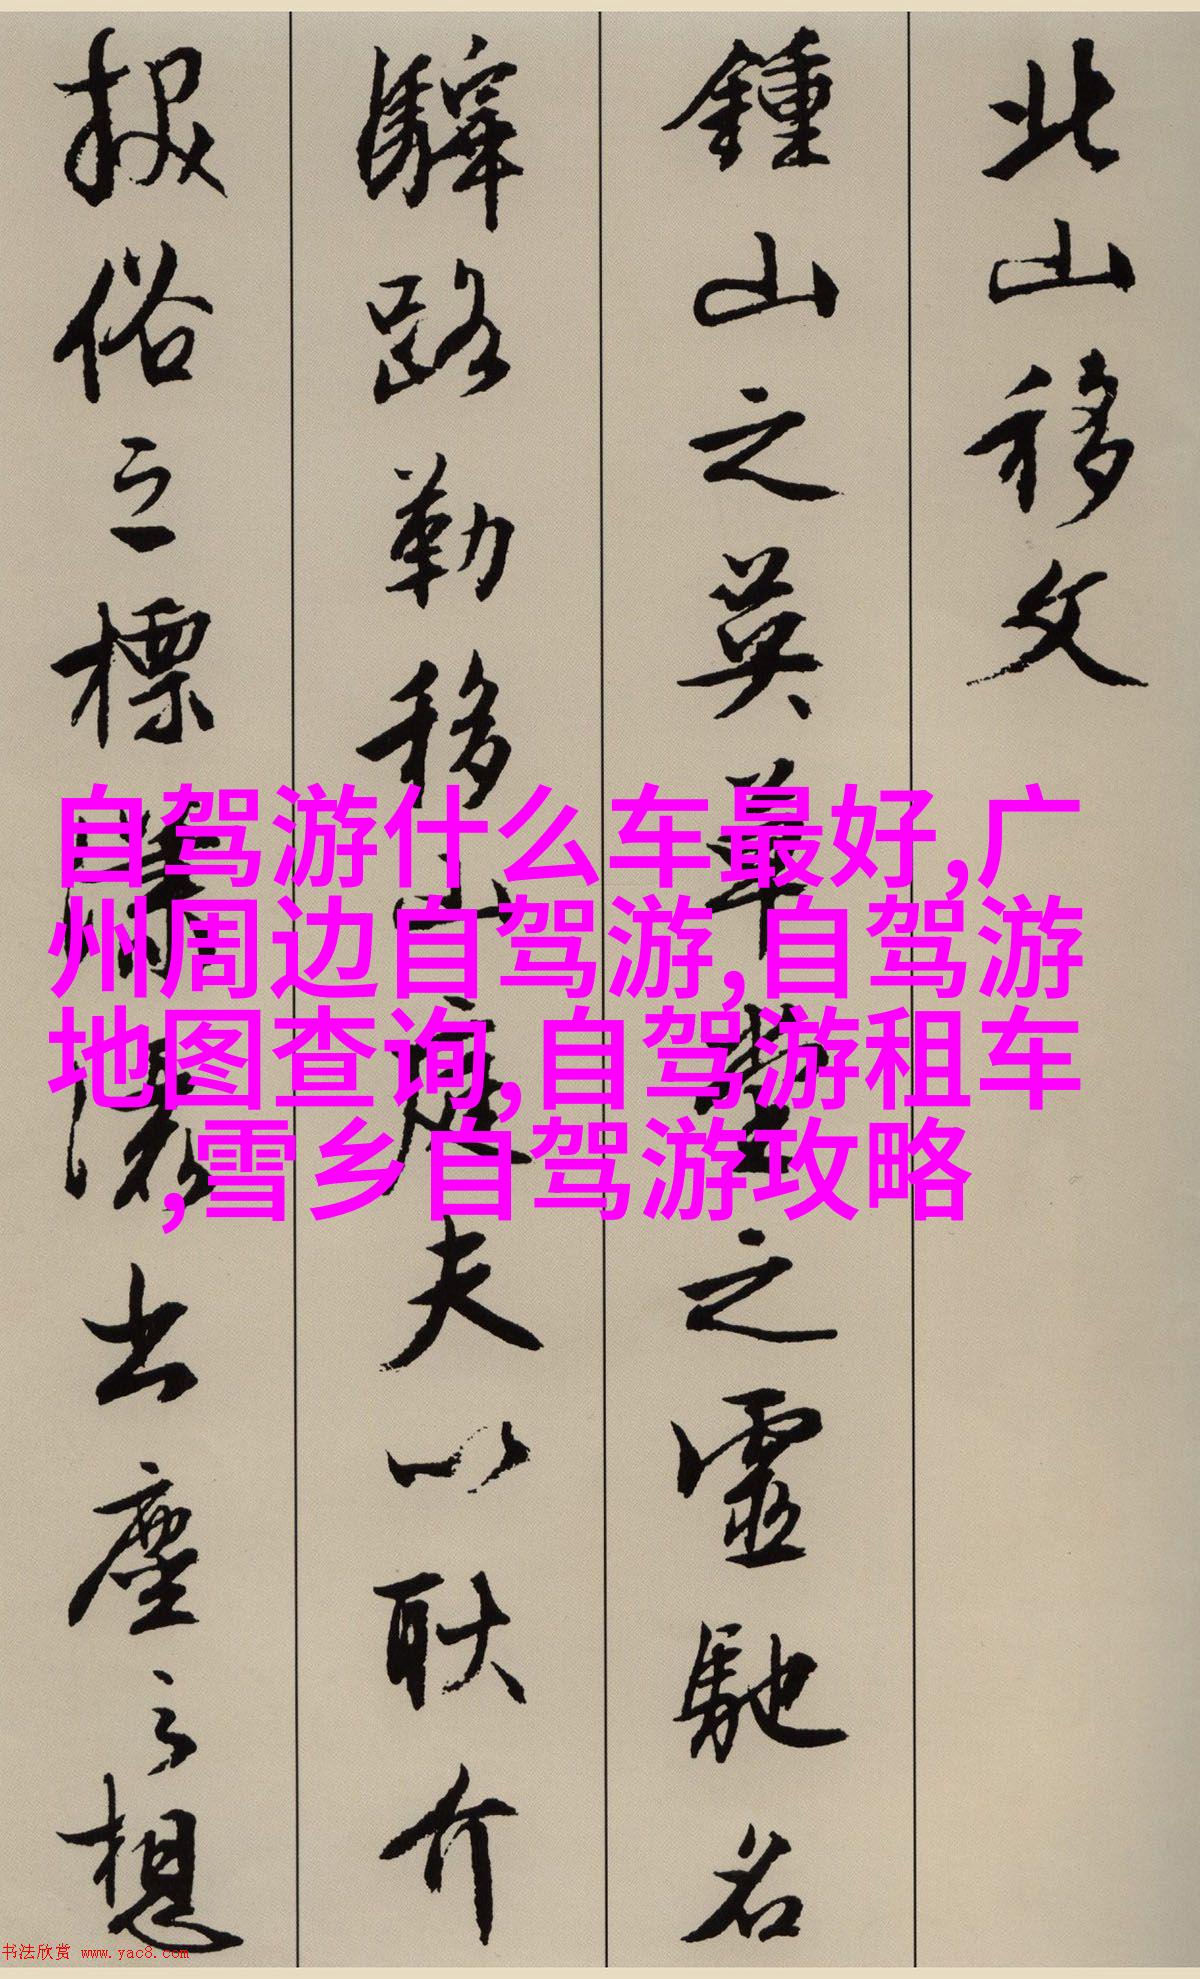 北山移文
鍾山之英草堂之靈馳名
驛路勒移山庭夫以耿介
拔俗之標瀟灑出塵之想
自驾游什么车最好,广
州周边自驾游,自驾游
地图查询,自驾游租车
,雪乡自驾游攻略
书法欣赏 www.yac8.com